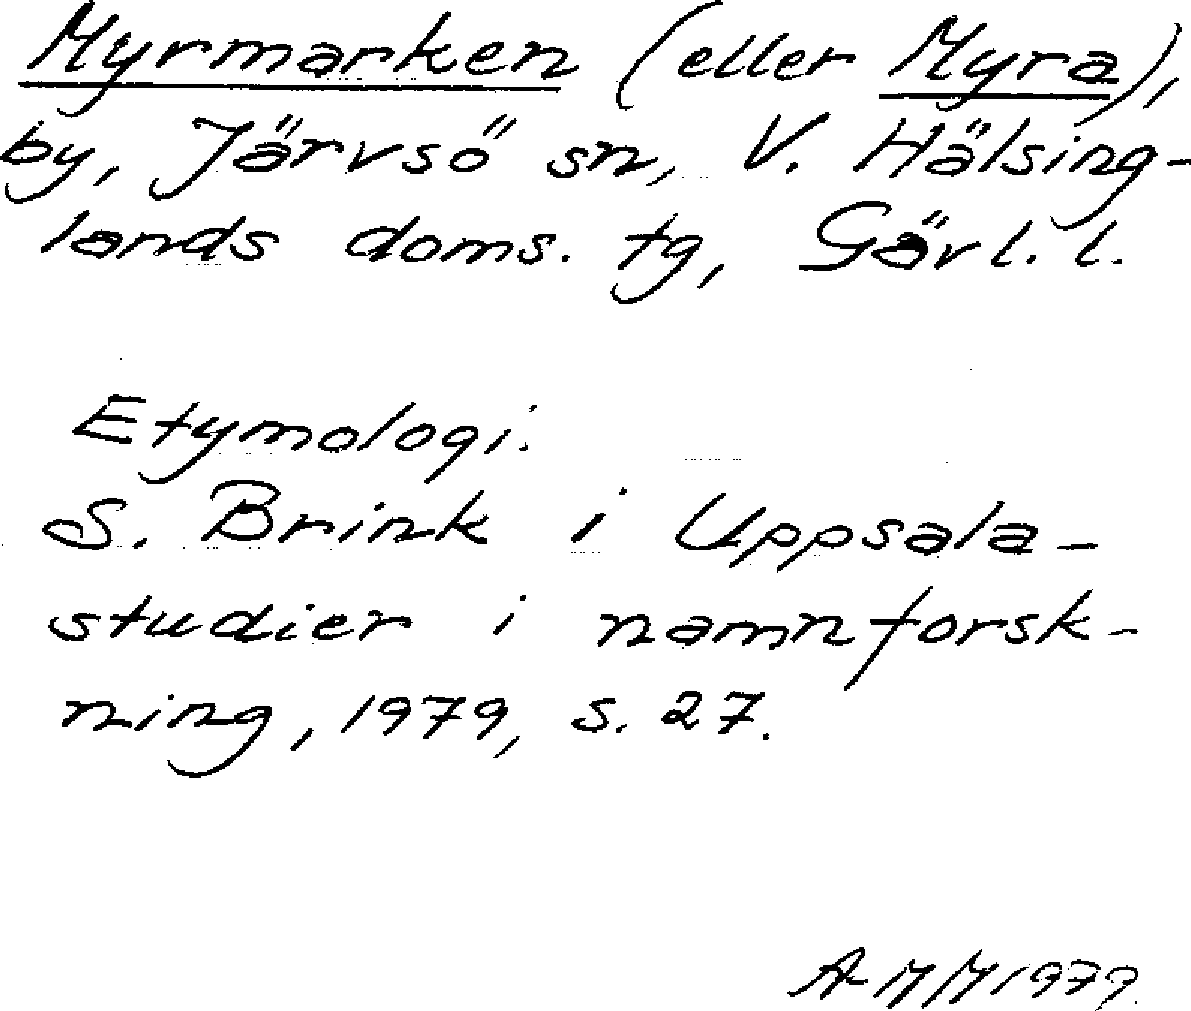 Myrmarken (eller Myra),
by, Järvsö sn, V. Hälsing-
lands doms. tg, Gävl. l.
Etymologi.
S. Brink i Uppsala-
studier i namnforsk-
ning, 1979, s. 27.
AMM 1979